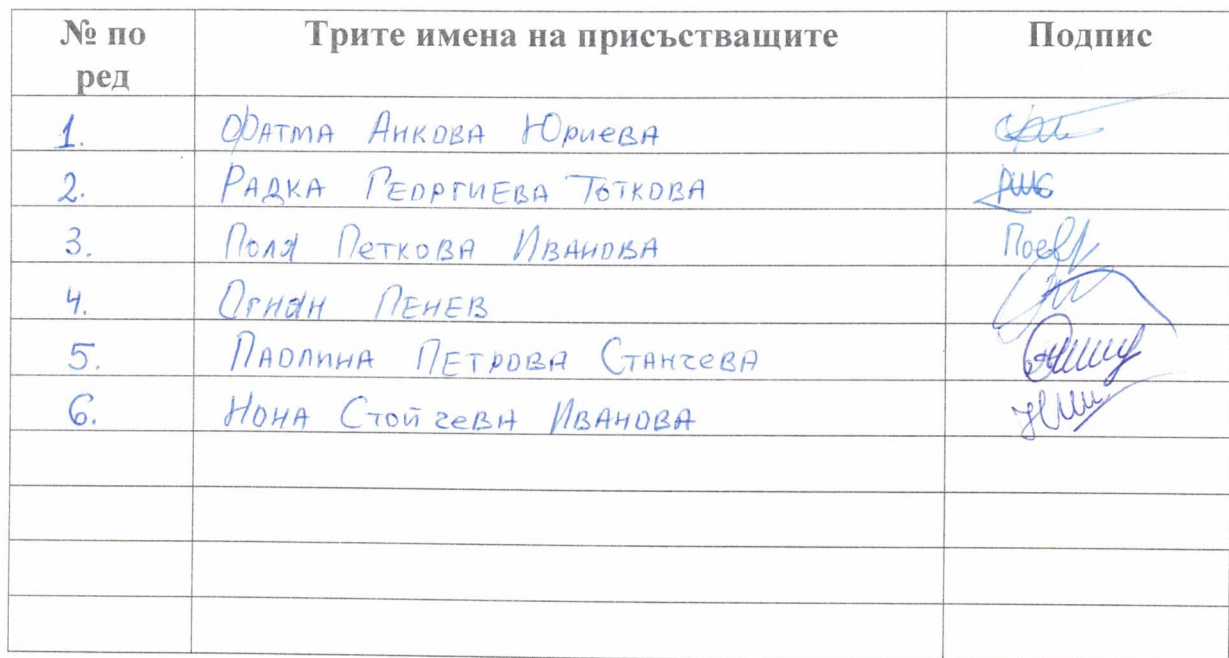 № по ред Трите имена на присъстващите Подпис
1. Фатма Анкова Юриева
2. Радка Георгиева Тоткова
3. Поля Петкова Иванова
4. Огнян Пенев
5. Паолина Петрова Станчева
6. Нона Стойчева Иванова